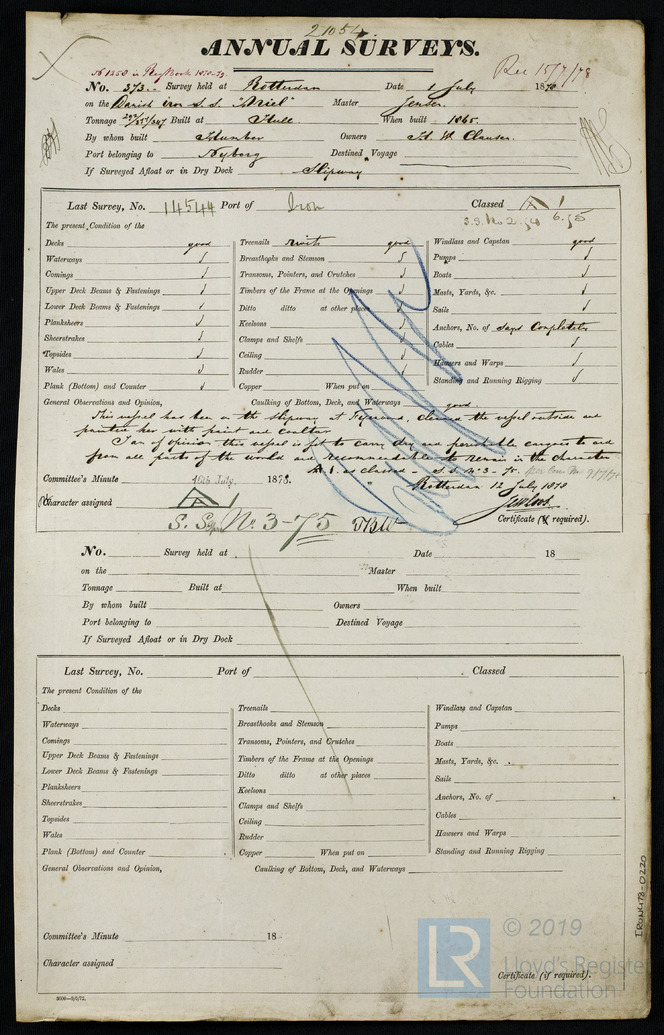 21054
ANNUAL SURVEYS.
No 1250 in Reg Book 1878-79
Rec 15/7/78
No. 373 Survey held at Rotterdam Date 1 July 1878
on the Danish iron S.S. "Ariel" Master Jensen
Tonnage Built at Hull When built 1865
By whom built Humber Owners H. W. Clausen
Port belonging to Nyborg Destined Voyage
If Surveyed Afloat or in Dry Dock Slipway
Last Survey, No. 14544 Port of Iron Classed A 1
S.S. No 2 6.75
The present Condition of the
Decks good Treenails rivets good Windlass and Capstan good
Waterways Breasthooks and Stemson Pumps
Comings Transoms, Pointers, and Crutches Boats
Upper Deck Beams & Fastenings Timbers of the Frame at the Openings Masts, Yards, &c.
Lower Deck Beams & Fastenings Ditto ditto at other places Sails
Planksheers Keelsons Anchors, No. of Completes
Sheerstrakes Clamps and Shelfs Cables
Topsides Ceiling Hawsers and Warps
Wales Rudder Standing and Running Rigging
Plank (Bottom) and Counter Copper When put on
General Observations and Opinion, Caulking of Bottom, Deck, and Waterways good
This vessel has been on the slipway at Fijenoord, cleaned the vessel outside and
painted her with paint and coaltar
I am of opinion this vessel is fit to carry dry and perishable cargoes to and
from all parts of the world and recommendable to remain in the character
A. 1. as classed - S.S. No 3 - 75.
Committee's Minute 16th July, 1878. Rotterdam 12 July 1878
Character assigned A 1
Certificate (if required).
S. S. No. 3-75
No. Survey held at Date 18
on the Master
Tonnage Built at When built
By whom built Owners
Port belonging to Destined Voyage
If Surveyed Afloat or in Dry Dock
Last Survey, No. Port of Classed
The present Condition of the
Decks Treenails Windlass and Capstan
Waterways Breasthooks and Stemson Pumps
Comings Transoms, Pointers, and Crutches Boats
Upper Deck Beams & Fastenings Timbers of the Frame at the Openings Masts, Yards, &c.
Lower Deck Beams & Fastenings Ditto ditto at other places Sails
Planksheers Keelsons Anchors, No. of
Sheerstrakes Clamps and Shelfs Cables
Topsides Ceiling Hawsers and Warps
Wales Rudder Standing and Running Rigging
Plank (Bottom) and Counter Copper When put on
General Observations and Opinion, Caulking of Bottom, Deck, and Waterways
Committee's Minute 18
Character assigned
Certificate (if required).
IRON478-0220
LR © 2019
Lloyd's Register
Foundation